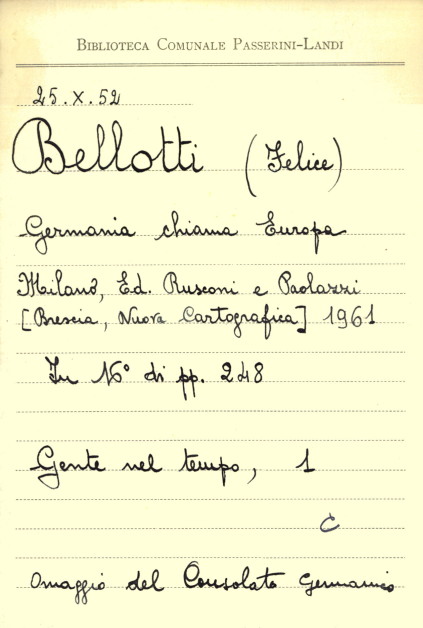 BIBLIOTECA COMUNALE PASSERINI-LANDI
25.X.52
Bellotti (Felice)
Germania chiama Europa
Milano, Ed. Rusconi e Paolazzi
[Brescia, Nuova Cartografica] 1961
In 16° di pp. 248
Gente nel tempo, 1
C
Omaggio del Consolato Germanico